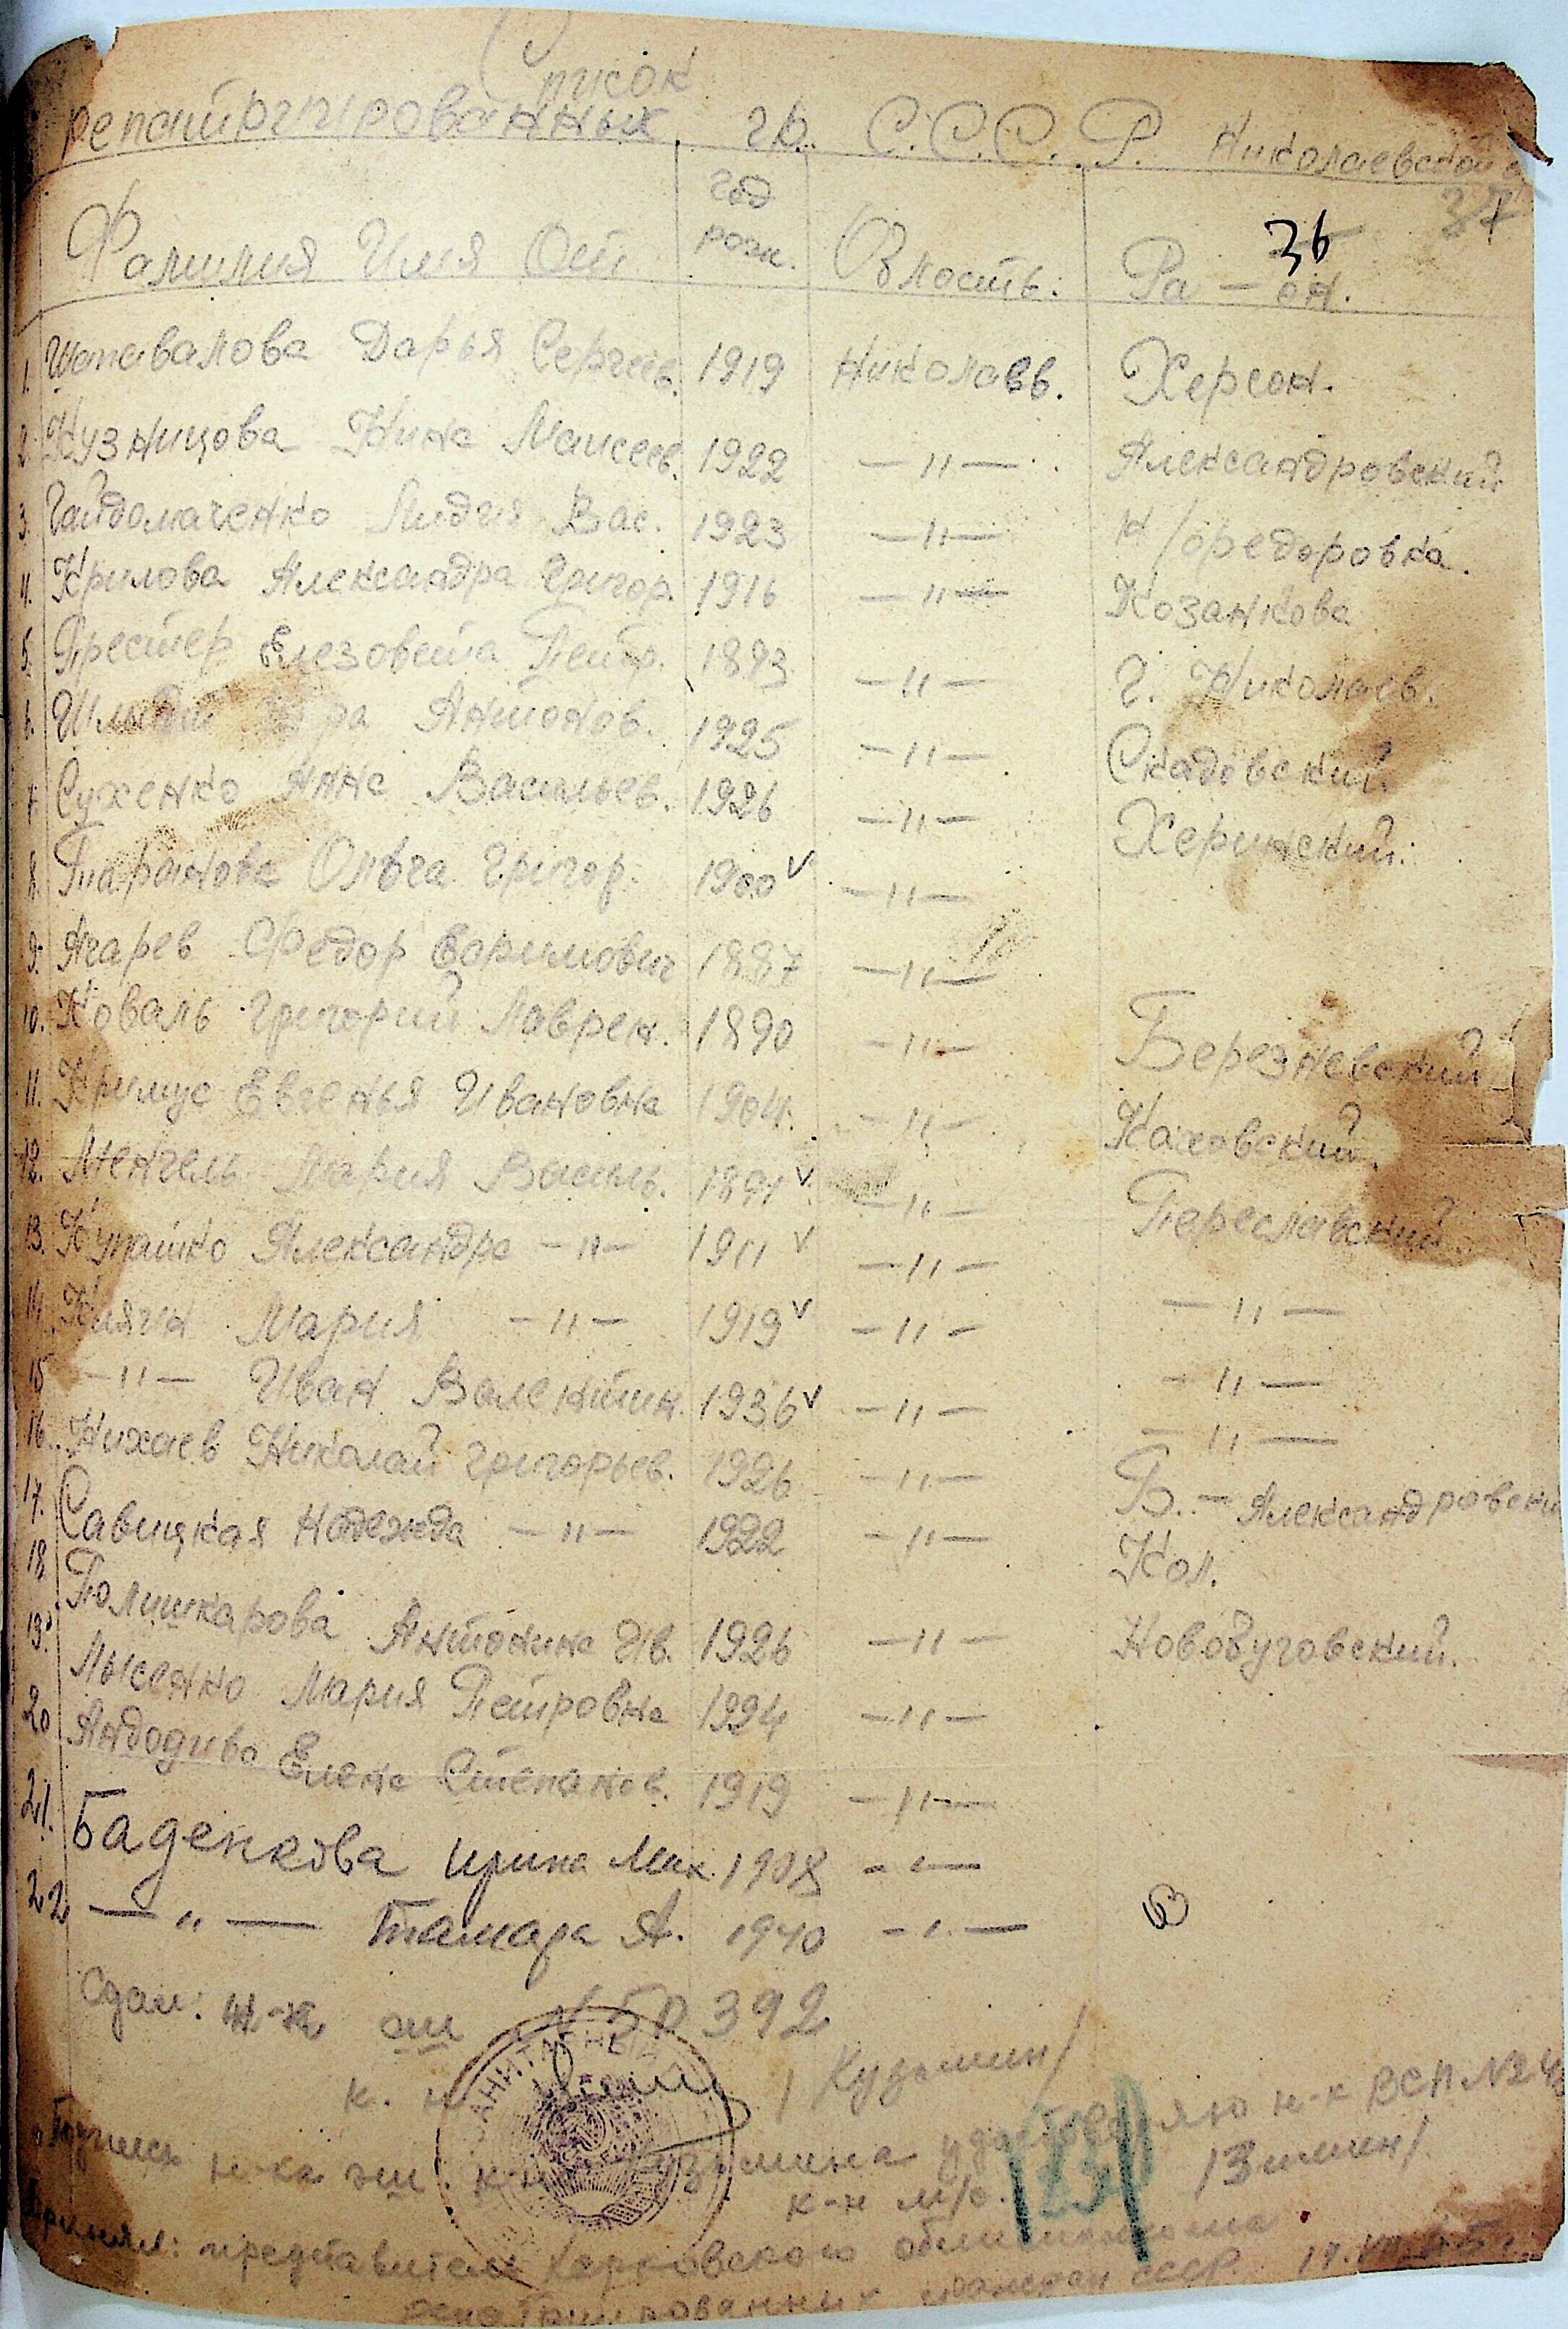 Список
репатриированных гр. С.С.С.Р. Николаевской о
37
36
Фамилия Имя От год рожн. Область: Ра-он.
1. Шаповалова Дарья Сергеев. 1919 Николаев. Херсон.
2. Кузницова Нина Маисеев. 1922 —"— Александровский
3. Гайдомаченко Лидия Вас. 1923 —"— Н/федоровка.
4. Крилова Александра Григор. 1916 —"— Козанкова
5. Престер Елезовета Петр. 1893 —"— г. Николаев.
6. Антонов. 1925 —"— Скадовский
7. Сухенко Анна Васильев. 1926 —"— Херинский.
8. Таранова Ольга Григор. 1900 v —"—
9. Агарев Федор Ефимович 1887 —"—
10. Коваль Григорий Лаврен. 1890 —"— Березневский
11. Кримус Евгенья Ивановна 1904. —"— Каховский.
12. Менгель Мария Василь. 1891 v —"— Переславский
13. Александра —"— 1911 v —"— —"—
14. Клягин Мария —"— 1919 v —"— —"—
15 —"— Иван Валентин. 1936 v —"— —"—
16. Нихаев Николай Григорьев. 1926 —"— Б.-Александровски
17. Савицкая Надежда —"— 1922 —"— Кол.
18 Полишкарова Антонина Ив. 1926 —"— Новобуговский.
19. Лысенко Мария Петровна 1924 —"—
20 Андодива Елена Степанов. 1919 —"—
21. Баденкова Ирина Мих. 1908 —"—
22 —"— Тамара А. 1940 —"—
Сдал: Н-к эш N 50392
к. н /Кузьмин/
Подпись н-ка эш. к-на Кузьмина удостоверяю н-к ВСП №
к-н м/с. /Зимин/
Принял: представитель Харьковского
репатриированных граждан СССР.